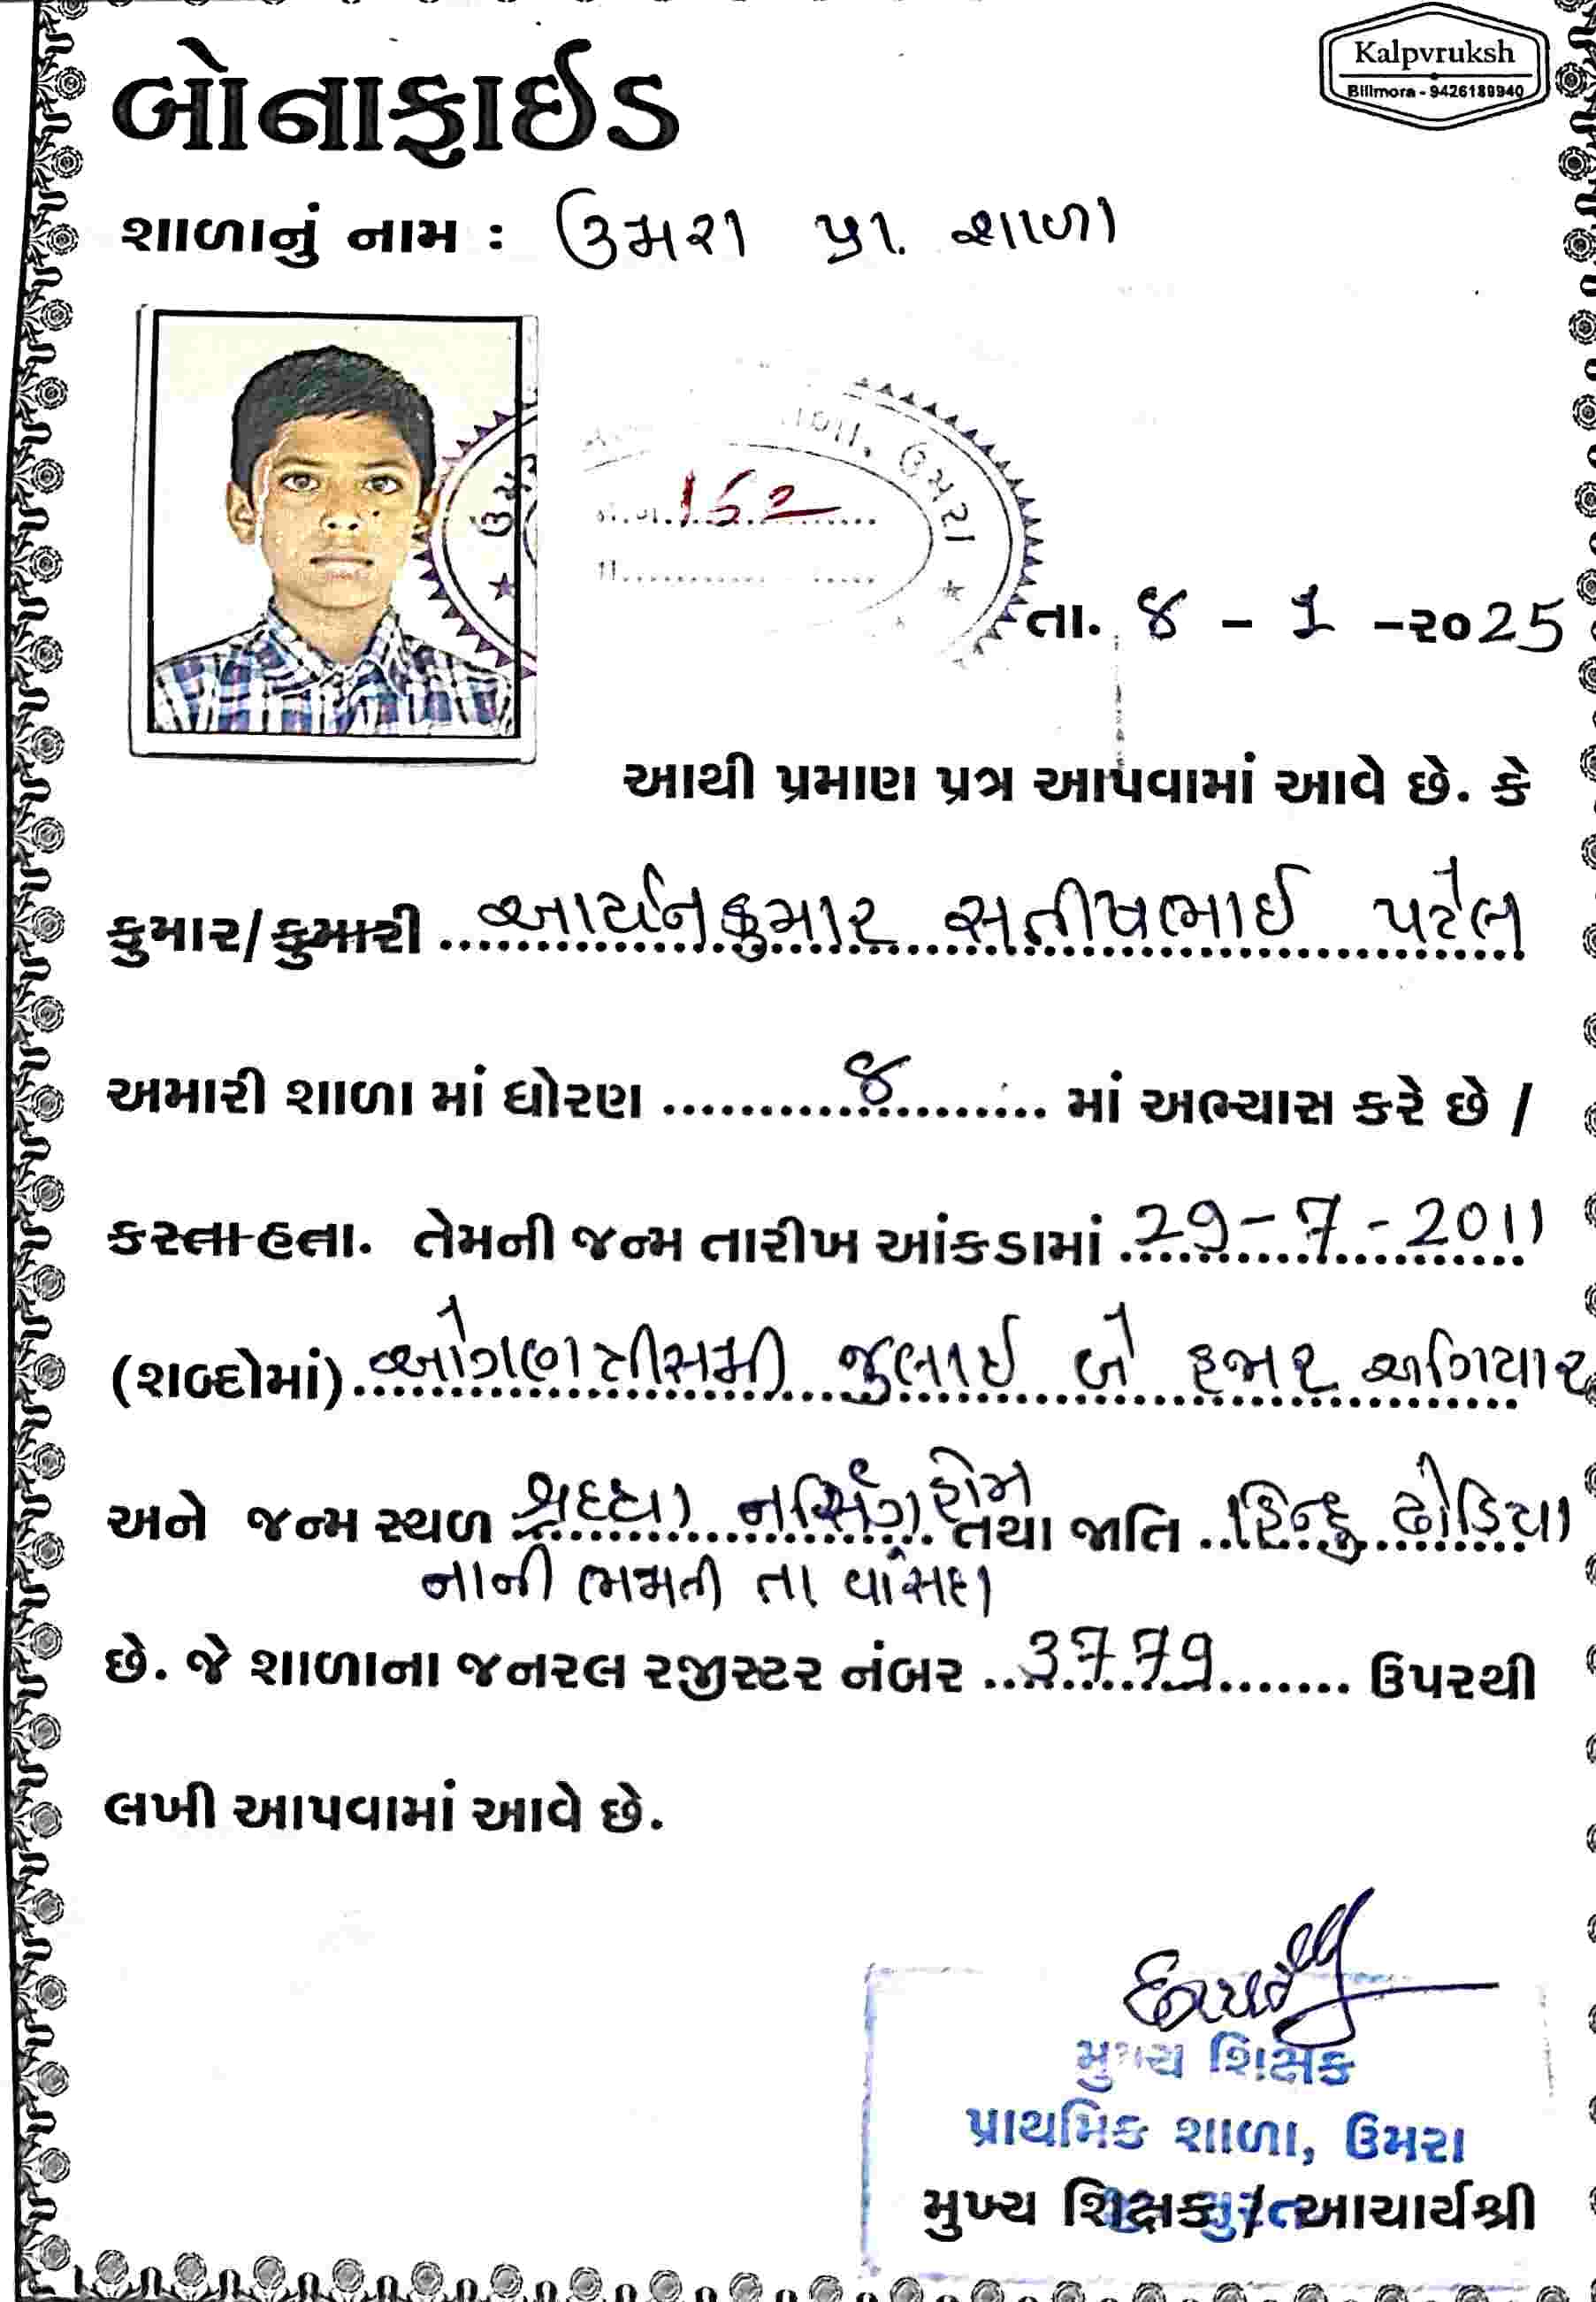 Kalpvruksh
Billmora - 9426189940
બોનાફાઈડ
શાળાનું નામ : ઉમરા પ્રા. શાળા
શાળા, ઉમરા
152
તા. ૪ - 1 -૨૦25
આથી પ્રમાણ પત્ર આપવામાં આવે છે. કે
કુમાર/કુમારી આર્યનકુમાર સતીષભાઈ પટેલ
અમારી શાળા માં ધોરણ ૪ માં અભ્યાસ કરે છે /
કરતા હતા. તેમની જન્મ તારીખ આંકડામાં 29-7-2011
(શબ્દોમાં) ઓગણત્રીસમી જુલાઈ બે હજાર અગિયાર
અને જન્મ સ્થળ શ્રધ્ધા નર્સિંગ હોમ તથા જાતિ હિન્દુ ઢોડિયા
નાની ભમતી તા વાંસદા
છે. જે શાળાના જનરલ રજીસ્ટર નંબર 3779 ઉપરથી
લખી આપવામાં આવે છે.
મુખ્ય શિક્ષક
પ્રાથમિક શાળા, ઉમરા
મુખ્ય શિક્ષક / આચાર્યશ્રી